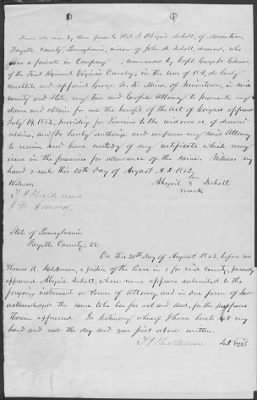 Know all men by these presents that I Abigail Sickett, of
Fayette County, Pennsylvania, widow of John Sickett, deceased, who
was a private in Company commanded by Capt.
of the First Regiment Virginia Cavalry, in the war of 1812, do hereby
constitute and appoint George W. K. Minor, of Uniontown, in said
county and state, my true and lawful Attorney to prosecute my
claim and obtain for me the benefit of the Act of Congress approved
July 14, 1862, providing for Pensions to the widows &c of deceased
soldiers, and do hereby authorize and empower my said Attorney
to receive and have custody of any certificate which may
issue in the premises for allowance of the same. Witness my
hand & seal this 20th day of August A.D. 1862.
Witness her
Abigail x Sickett
mark
State of Pennsylvania
Fayette County, ss.
On this 20th day of August 1862, before me
Thomas R. a justice of the Peace in & for said county, personally
appeared Abigail Sickett, whose name appears subscribed to the
foregoing instrument or Power of Attorney, and in due form of law
acknowledged the same to be her act and deed, for the purposes
therein expressed. In testimony whereof I have hereto set my
hand and seal the day and year first above written.